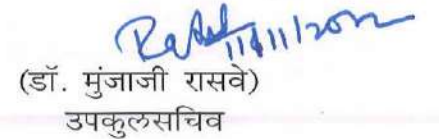 11/11/2022
(डॉ. मुंजाजी रासवे)
उपकुलसचिव